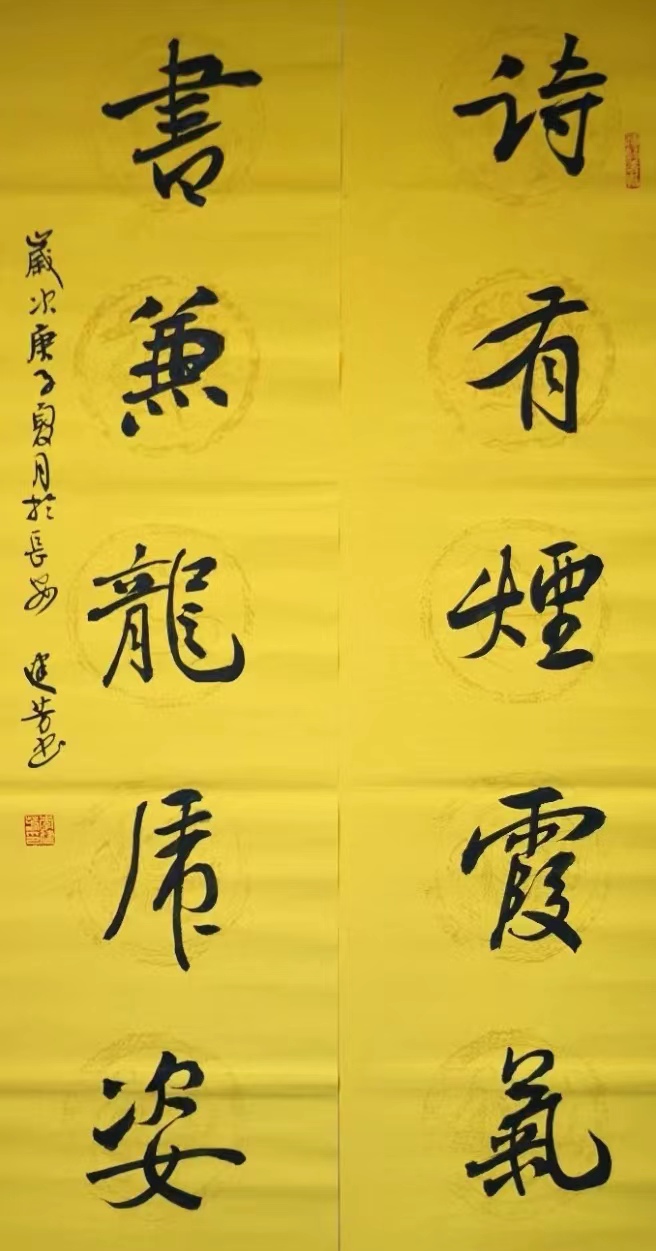 詩有煙霞氣
書兼龍虎姿
歲次庚子夏月於長安 建芳書